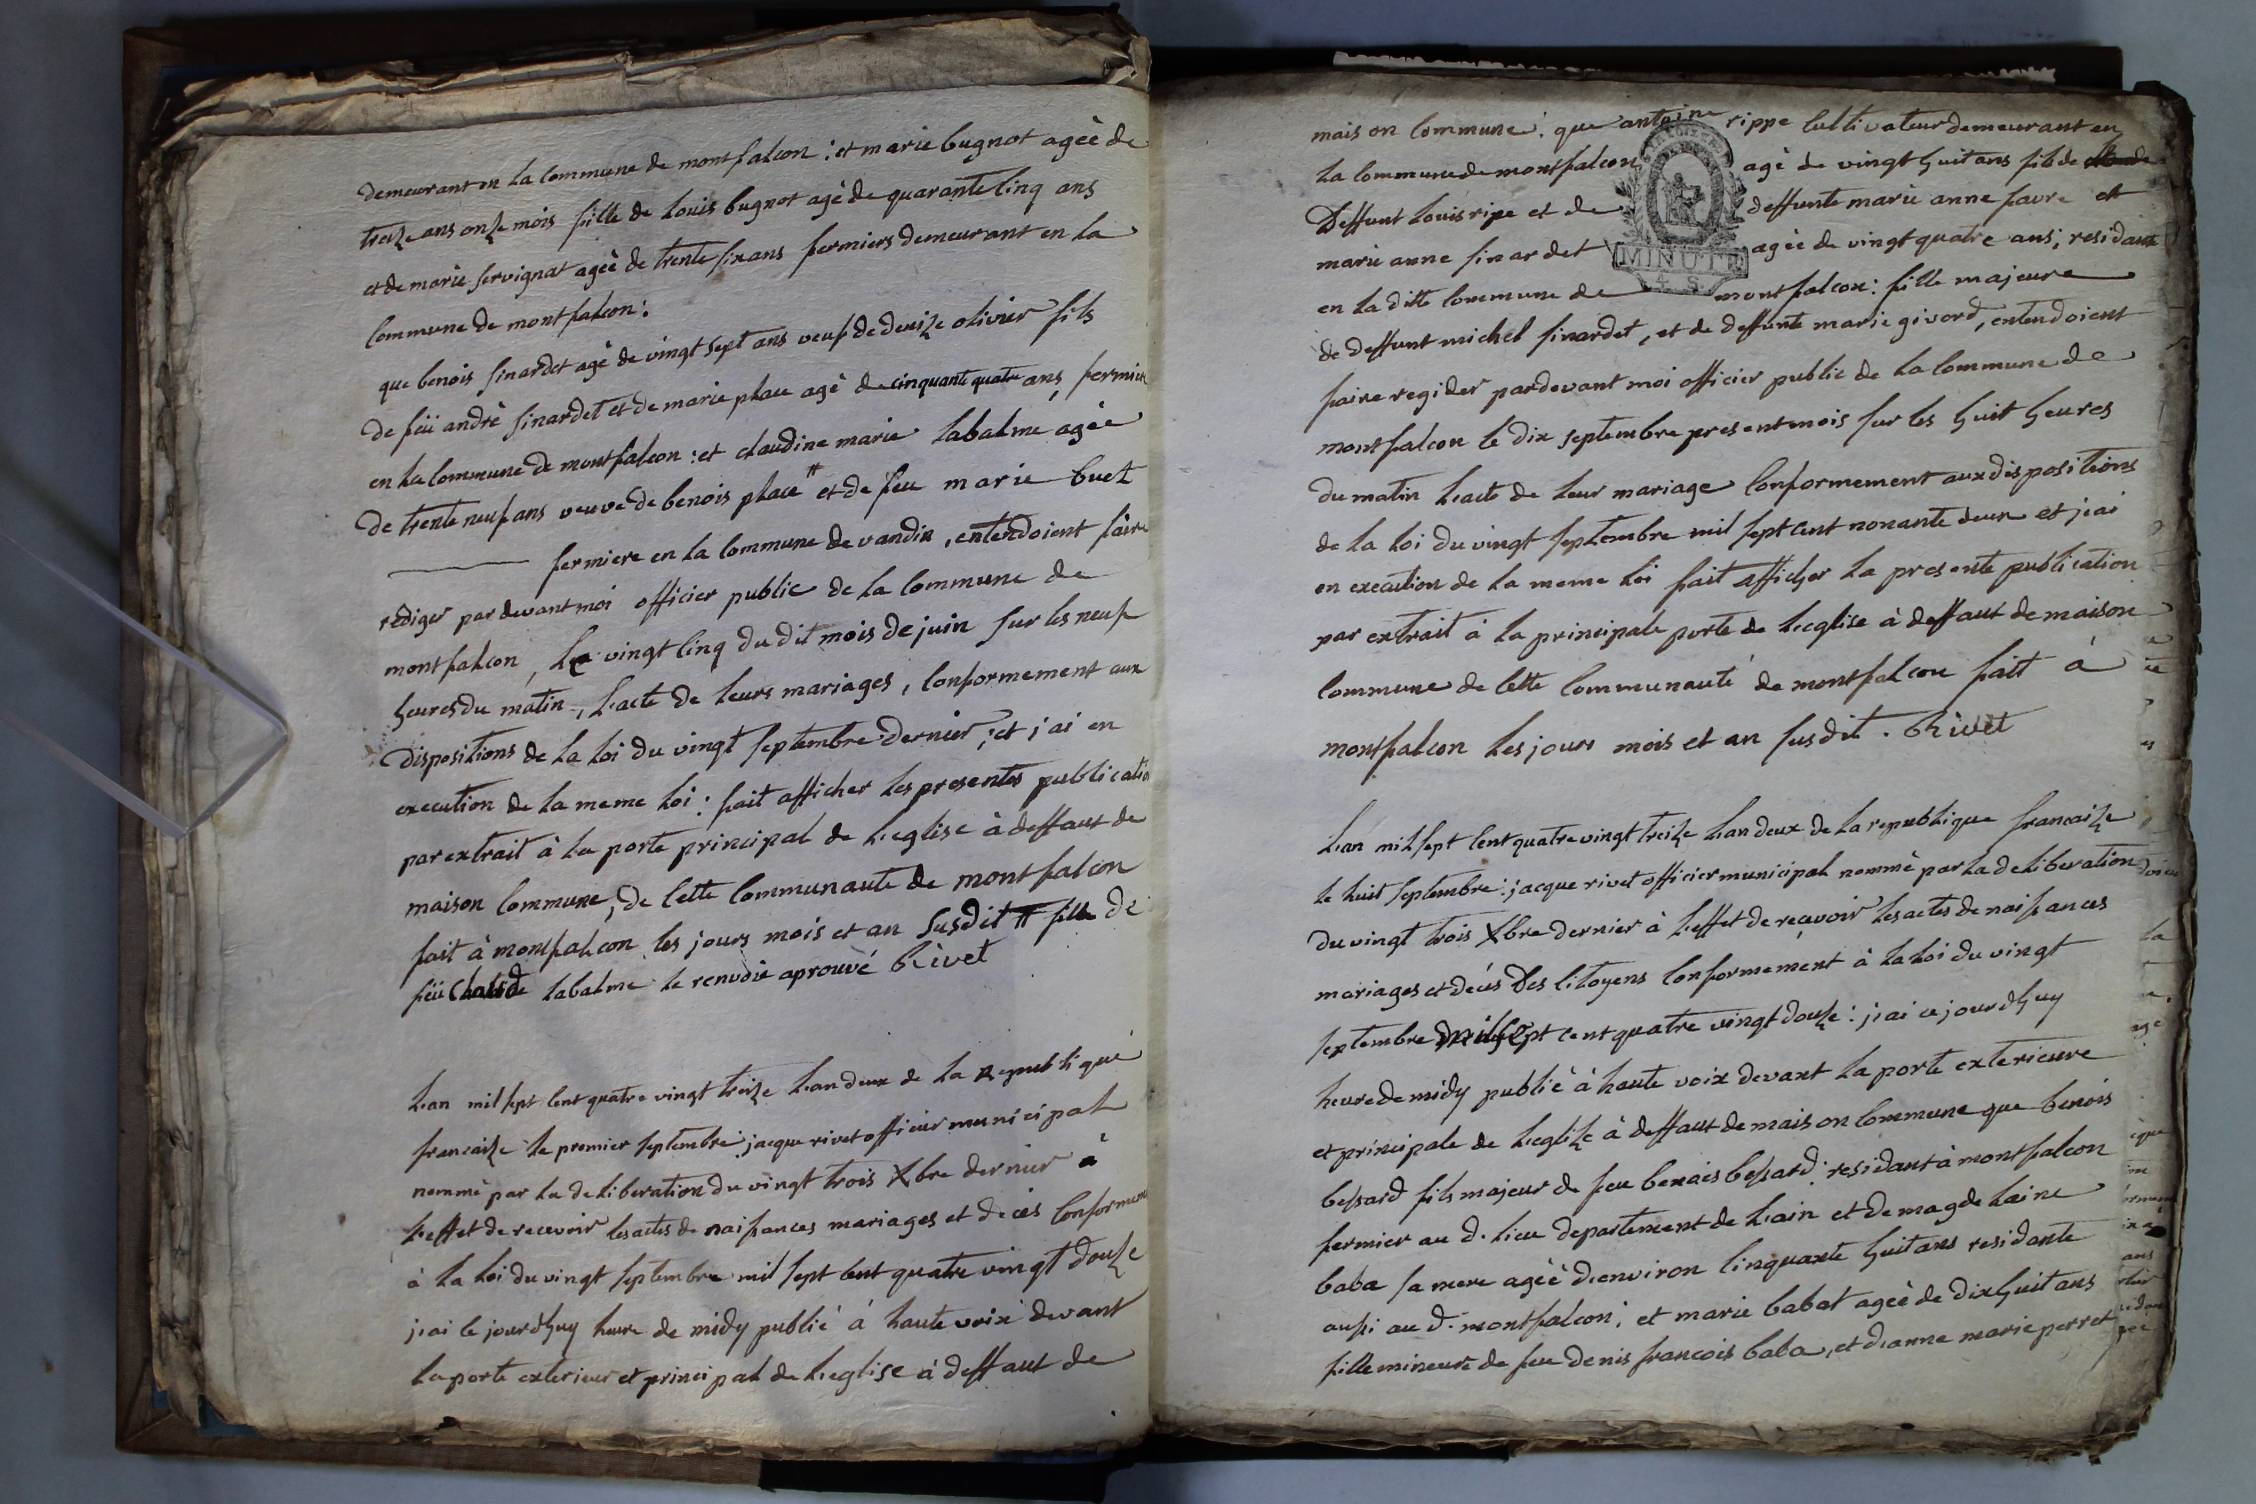 demeurant en la commune de montfalcon : et marie bugnot agèè de
treize ans onze mois fille de louis bugnot agè de quarante cinq ans
et de marie servignat agèè de trente six ans fermiers demeurant en la
commune de montfalcon :
que benois sinardet agè de vingt sept ans veuf de denize olivier fils
de feü andrè sinardet et de marie place agè de cinquante quatre ans, fermier
en la commune de montfalcon : et claudine marie labalme agèe
de trente neuf ans veuve de benois place # et de feu marie buet
fermiere en la commune de vandin, entendoient faire
rediger par devant moi officier public de la commune de
montfalcon, le vingt cinq du dit mois de juin sur les neuf
heures du matin, l'acte de leurs mariages, conformement aux
dispositions de la loi du vingt septembre dernier, et j'ai en
execution de la meme loi : fait afficher les presentes publication
par extrait à la porte principal de l'eglise à deffaut de
maison commune, de cette communauté de montfalcon
fait à montfalcon les jours mois et an susdit # fille de
feü claude labalme le renvoie aprouvé Rivet
L'an mil sept cent quatre vingt treize l'an deux de la Republique
francaize le premier septembre : jacque rivet officier municipal
nommè par la deliberation du vingt trois Xbre dernier à
l'effet de recevoir les actes de naissances mariages et decès conformement
à la loi du vingt septembre mil sept cent quatre vingt douze
j'ai ce jourdhuy heure de midy publié à haute voix devant
la porte exterieur et principal de l'eglise à deffaut de
maison commune : que antoine rippe cultivateur demeurant en
la commune de montfalcon agè de vingt huit ans fils de
deffunt louis ripe et de deffunte marie anne favre et
marie anne sinardet agèe de vingt quatre ans, residante
MINUTE
4 S.
en la ditte commune de montfalcon : fille majeure
de deffunt michel sinardet, et de deffunte marie givord, entendoient
faire regider pardevant moi officier public de la commune de
montfalcon le dix septembre present mois sur les huit heures
du matin l'acte de leur mariage conformement aux dispositions
de la loi du vingt septembre mil sept cent nonante deux et j'ai
en execution de la meme loi fait afficher la presente publication
par extrait à la principale porte de l'eglise à deffaut de maison
commune de cette communauté de montfalcon fait à
montfalcon les jours mois et an susdit. Rivet
L'an mil sept cent quatre vingt treize l'an deux de la republique francaize
le huit septembre : jacque rivet officier municipal nommè par la deliberation
du vingt trois Xbre dernier à l'effet de recevoir les actes de naissances
mariages et decés des citoyens conformement à la loi du vingt
septembre mil sept cent quatre vingt douze : j'ai ce jourdhuy
heure de midy publiè à haute voix devant la porte exterieure
et principale de l'eglize à deffaut de maison commune que benois
bessard fils majeur de feu benois bessard : residant à montfalcon
fermier au d. lieu departement de l'ain et de magdelaine
baba sa mere agèè d'environ cinquante huit ans residante
aussi au d. montfalcon : et marie babat agèè de dix huit ans
fille mineure de feu denis francois baba, et d'anne marie perret